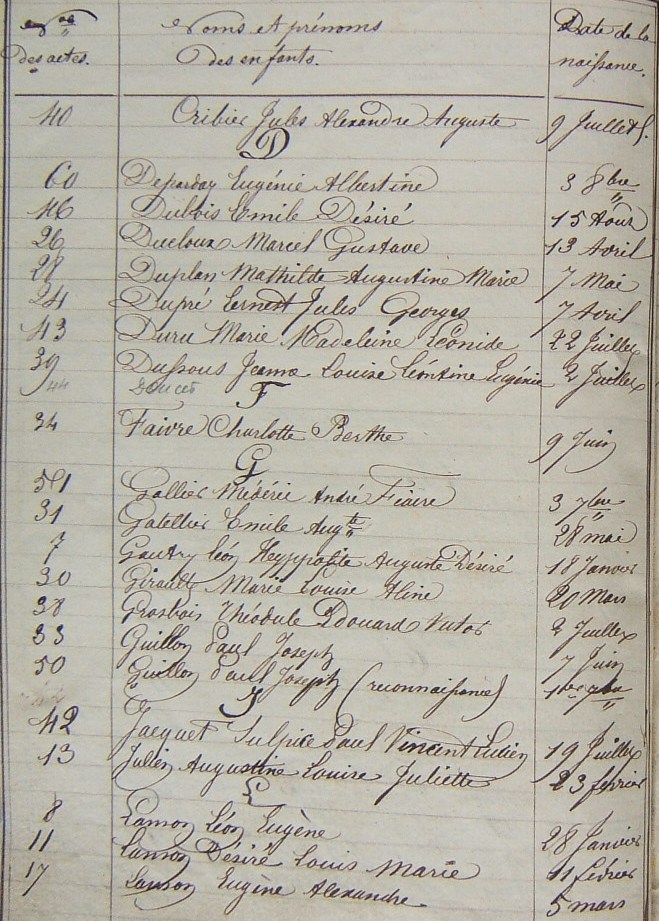 Nos Noms et prénoms Date de la
des actes. des enfants. naissance.
40 Cribier Jules Alexandre Auguste 9 Juillet
D
60 Deparday Eugénie Albertine 3 8bre
46 Dubois Emile Désiré 15 Aout
26 Ducloux Marcel Gustave 13 Avril
28 Duplan Mathilde Augustine Marie 7 Mai
24 Dupré Ernest Jules Georges 7 Avril
43 Duru Marie Madeleine Léonide 22 Juillet
39 Dussous Jeanne Louise Léontine Eugénie 2 Juillet
44 Doucet
F
34 Faivre Charlotte Berthe 9 Juin
G
51 Gallier Médéric André Fiacre 3 7bre
31 Gatellier Emile Augte 28 mai
7 Gautry Léon Hyppolite Auguste Désiré 18 Janvier
30 Girault Marie Louise Aline 20 Mars
38 Grosbois Théodule Edouard Victor 2 Juillet
33 Guillon Paul Joseph 7 Juin
50 Guillon Paul Joseph (reconnaissance) 1er 7bre
J
42 Jacquet Sulpice Paul Vincent Lucien 19 Juillet
13 Julien Augustine Louise Juliette 23 février
L
8 Lanson Léon Eugène 28 Janvier
11 Lanson Désiré Louis Marie 11 février
17 Lanson Eugène Alexandre 5 mars